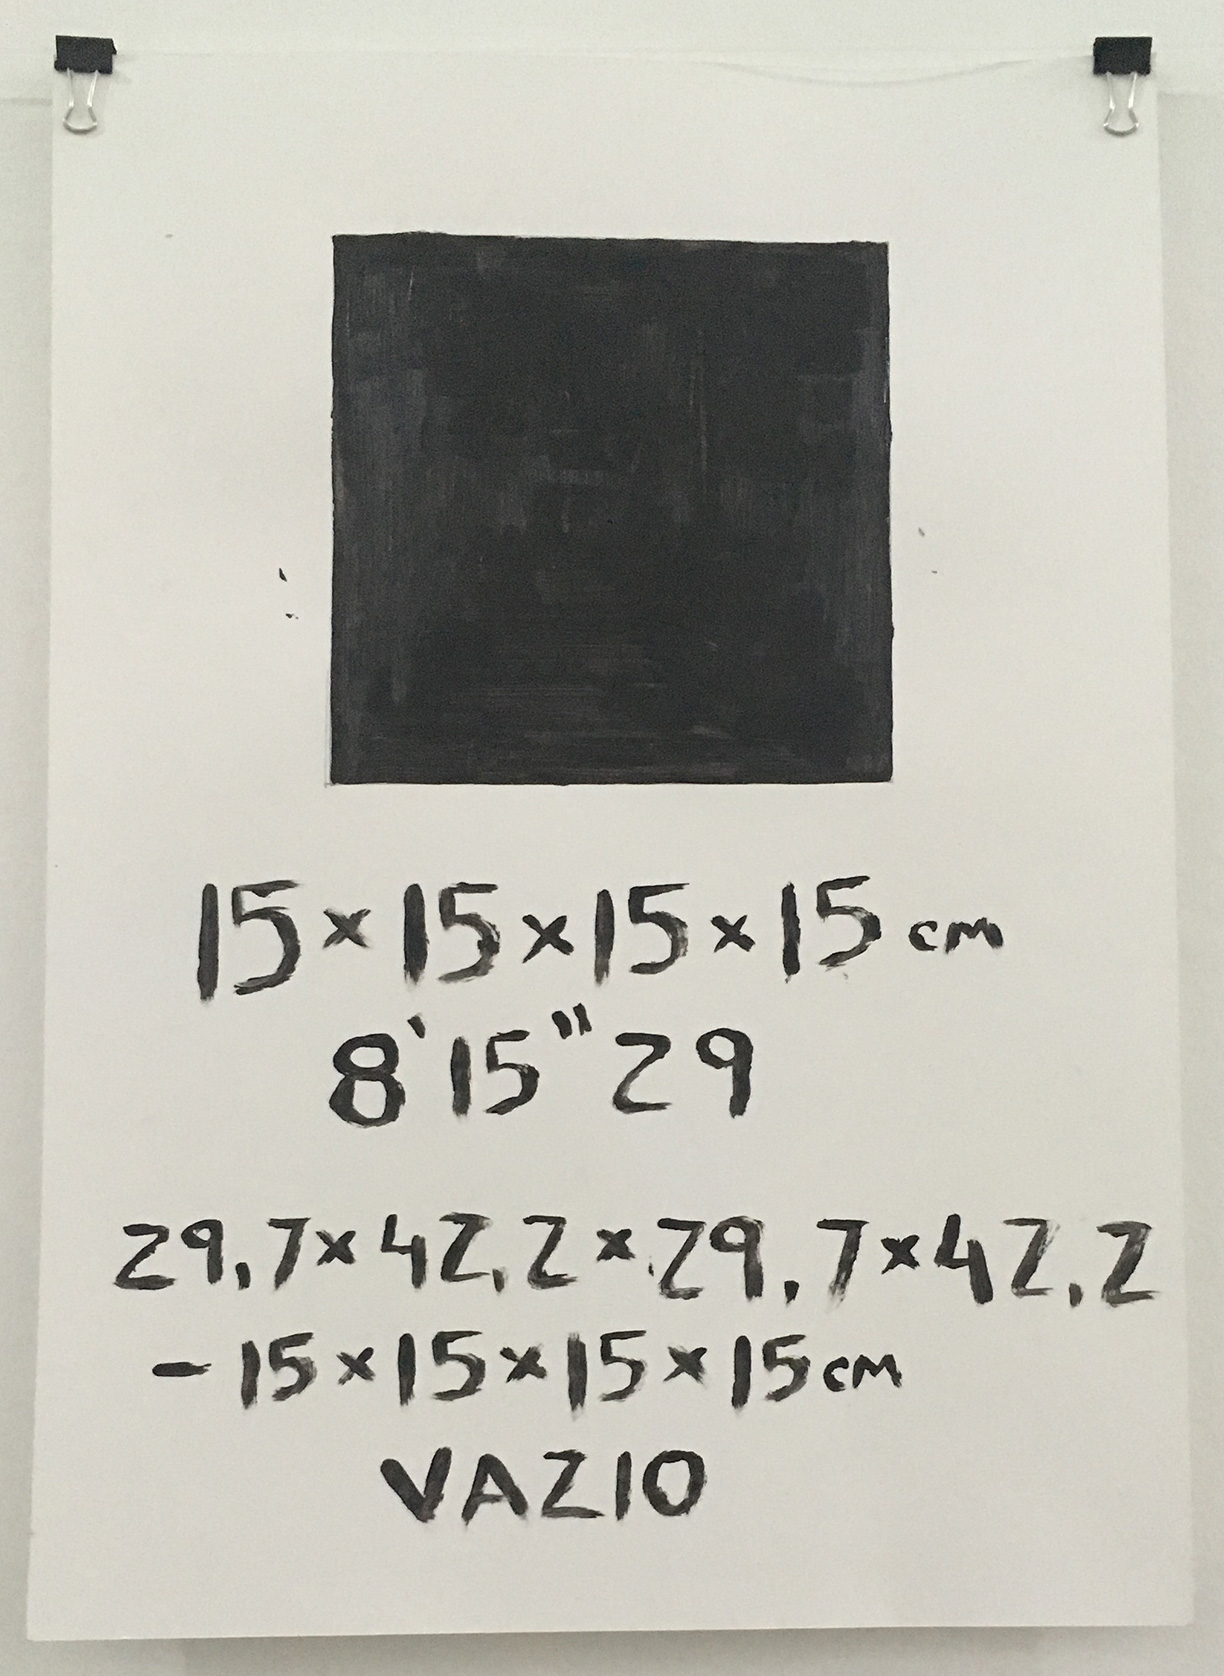 15×15×15×15 cm
8'15"29
29,7×42,2×29,7×42,2
-15×15×15×15cm
VAZIO